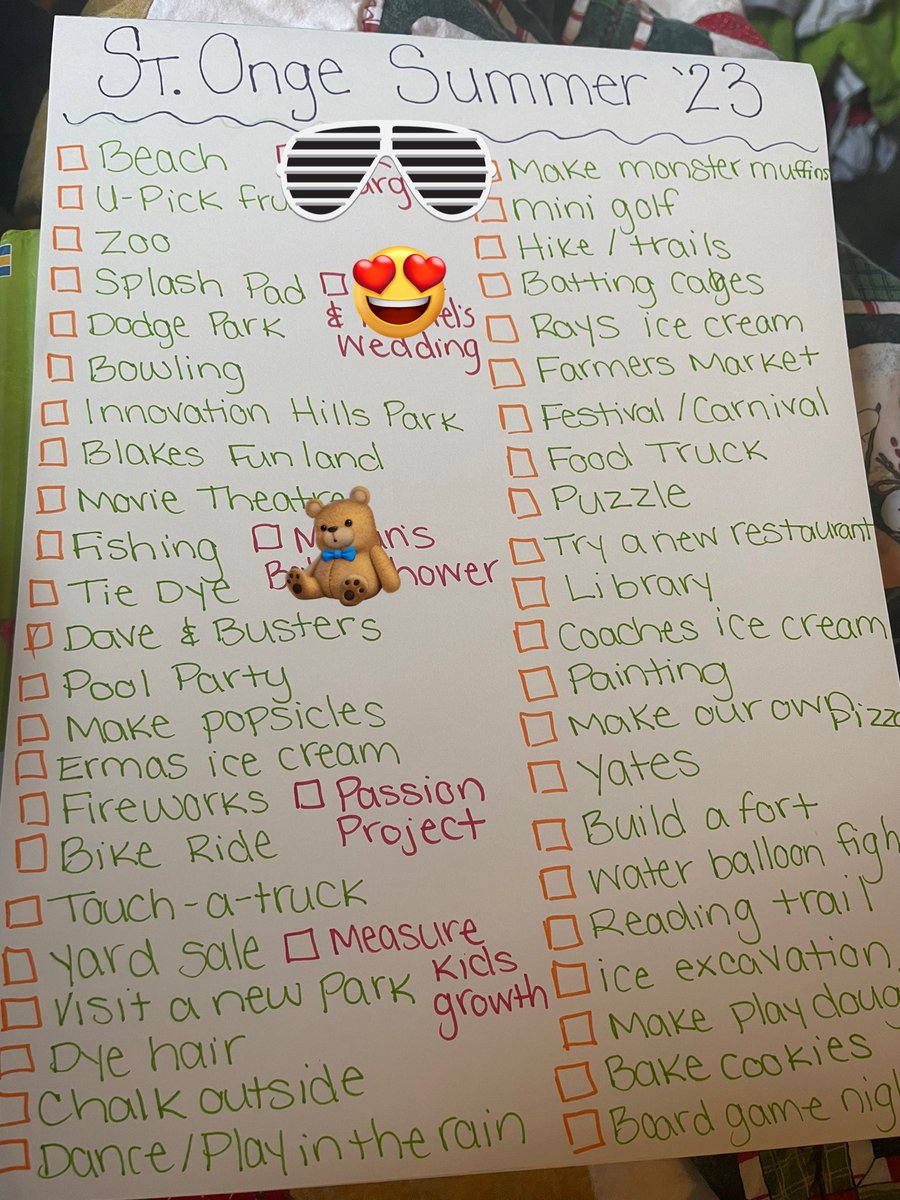 St. Onge Summer '23
Beach
U-Pick
Zoo
Splash Pad
Dodge Park
&
Wedding
Bowling
Innovation Hills Park
Blakes Funland
Movie Theatre
Fishing
Tie Dye
Dave & Busters
Pool Party
Make popsicles
Ermas ice cream
Fireworks
Passion
Project
Bike Ride
Touch-a-truck
Yard sale
Measure
kids
growth
Visit a new Park
Dye hair
Chalk outside
Dance/Play in the rain
Make monster muffins
mini golf
Hike / trails
Batting cages
Rays ice cream
Farmers Market
Festival/Carnival
Food Truck
Puzzle
Try a new restaurant
Library
Coaches ice cream
Painting
Make our own Pizza
Yates
Build a fort
Water balloon figh
Reading trail
ice excavation
Make play doug
Bake cookies
Board game nigh